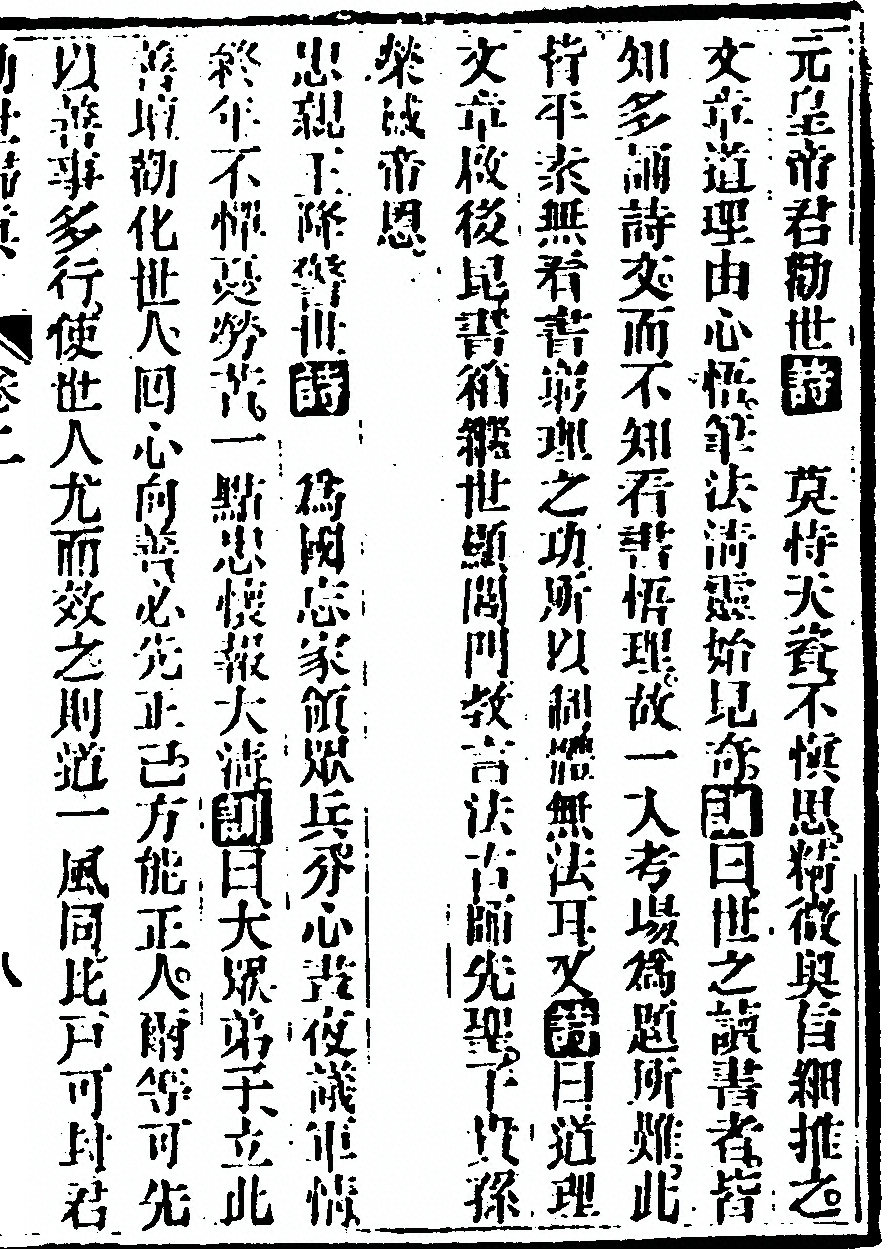 元皇帝君勸世詩　莫恃天資不愼思精微奧旨細推之
文章道理由心悟筆法清靈始見奇訓曰世之讀書者皆
知多誦詩文而不知看書悟理故一入考場為題所難此
皆平素無看書窮理之功所以制藝無法耳又詩曰道理
文章啟後昆書箱繼世顯閭門教言法古師先聖下貴孫
榮戚帝恩
忠親王降警世詩　為國忘家領眾兵分心晝夜議軍情
終年不憚憂勞苦一點忠懷報大清訓曰大眾弟子立此
善壇勸化世人回心向善必先正己方能正人爾等可先
以善事多行使世人尤而效之則道一風同比戶可封君
勸世歸真　卷二　八